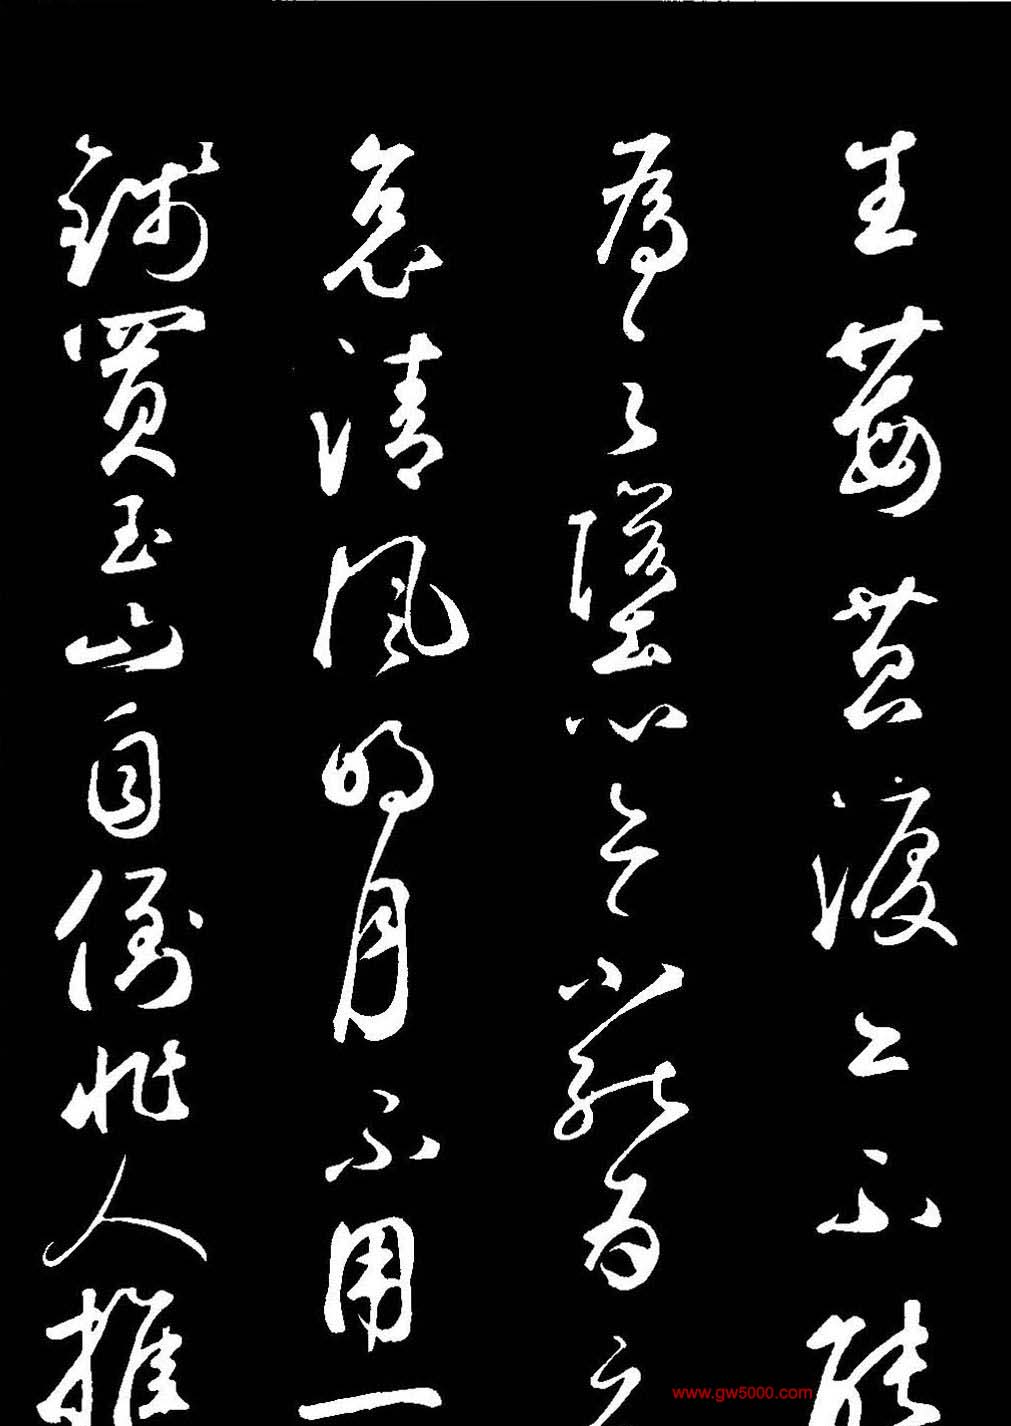 生莓苔淚亦不能
為之墮心亦不能為之
哀清風明月不用一
錢買玉山自倒非人推
www.gw5000.com